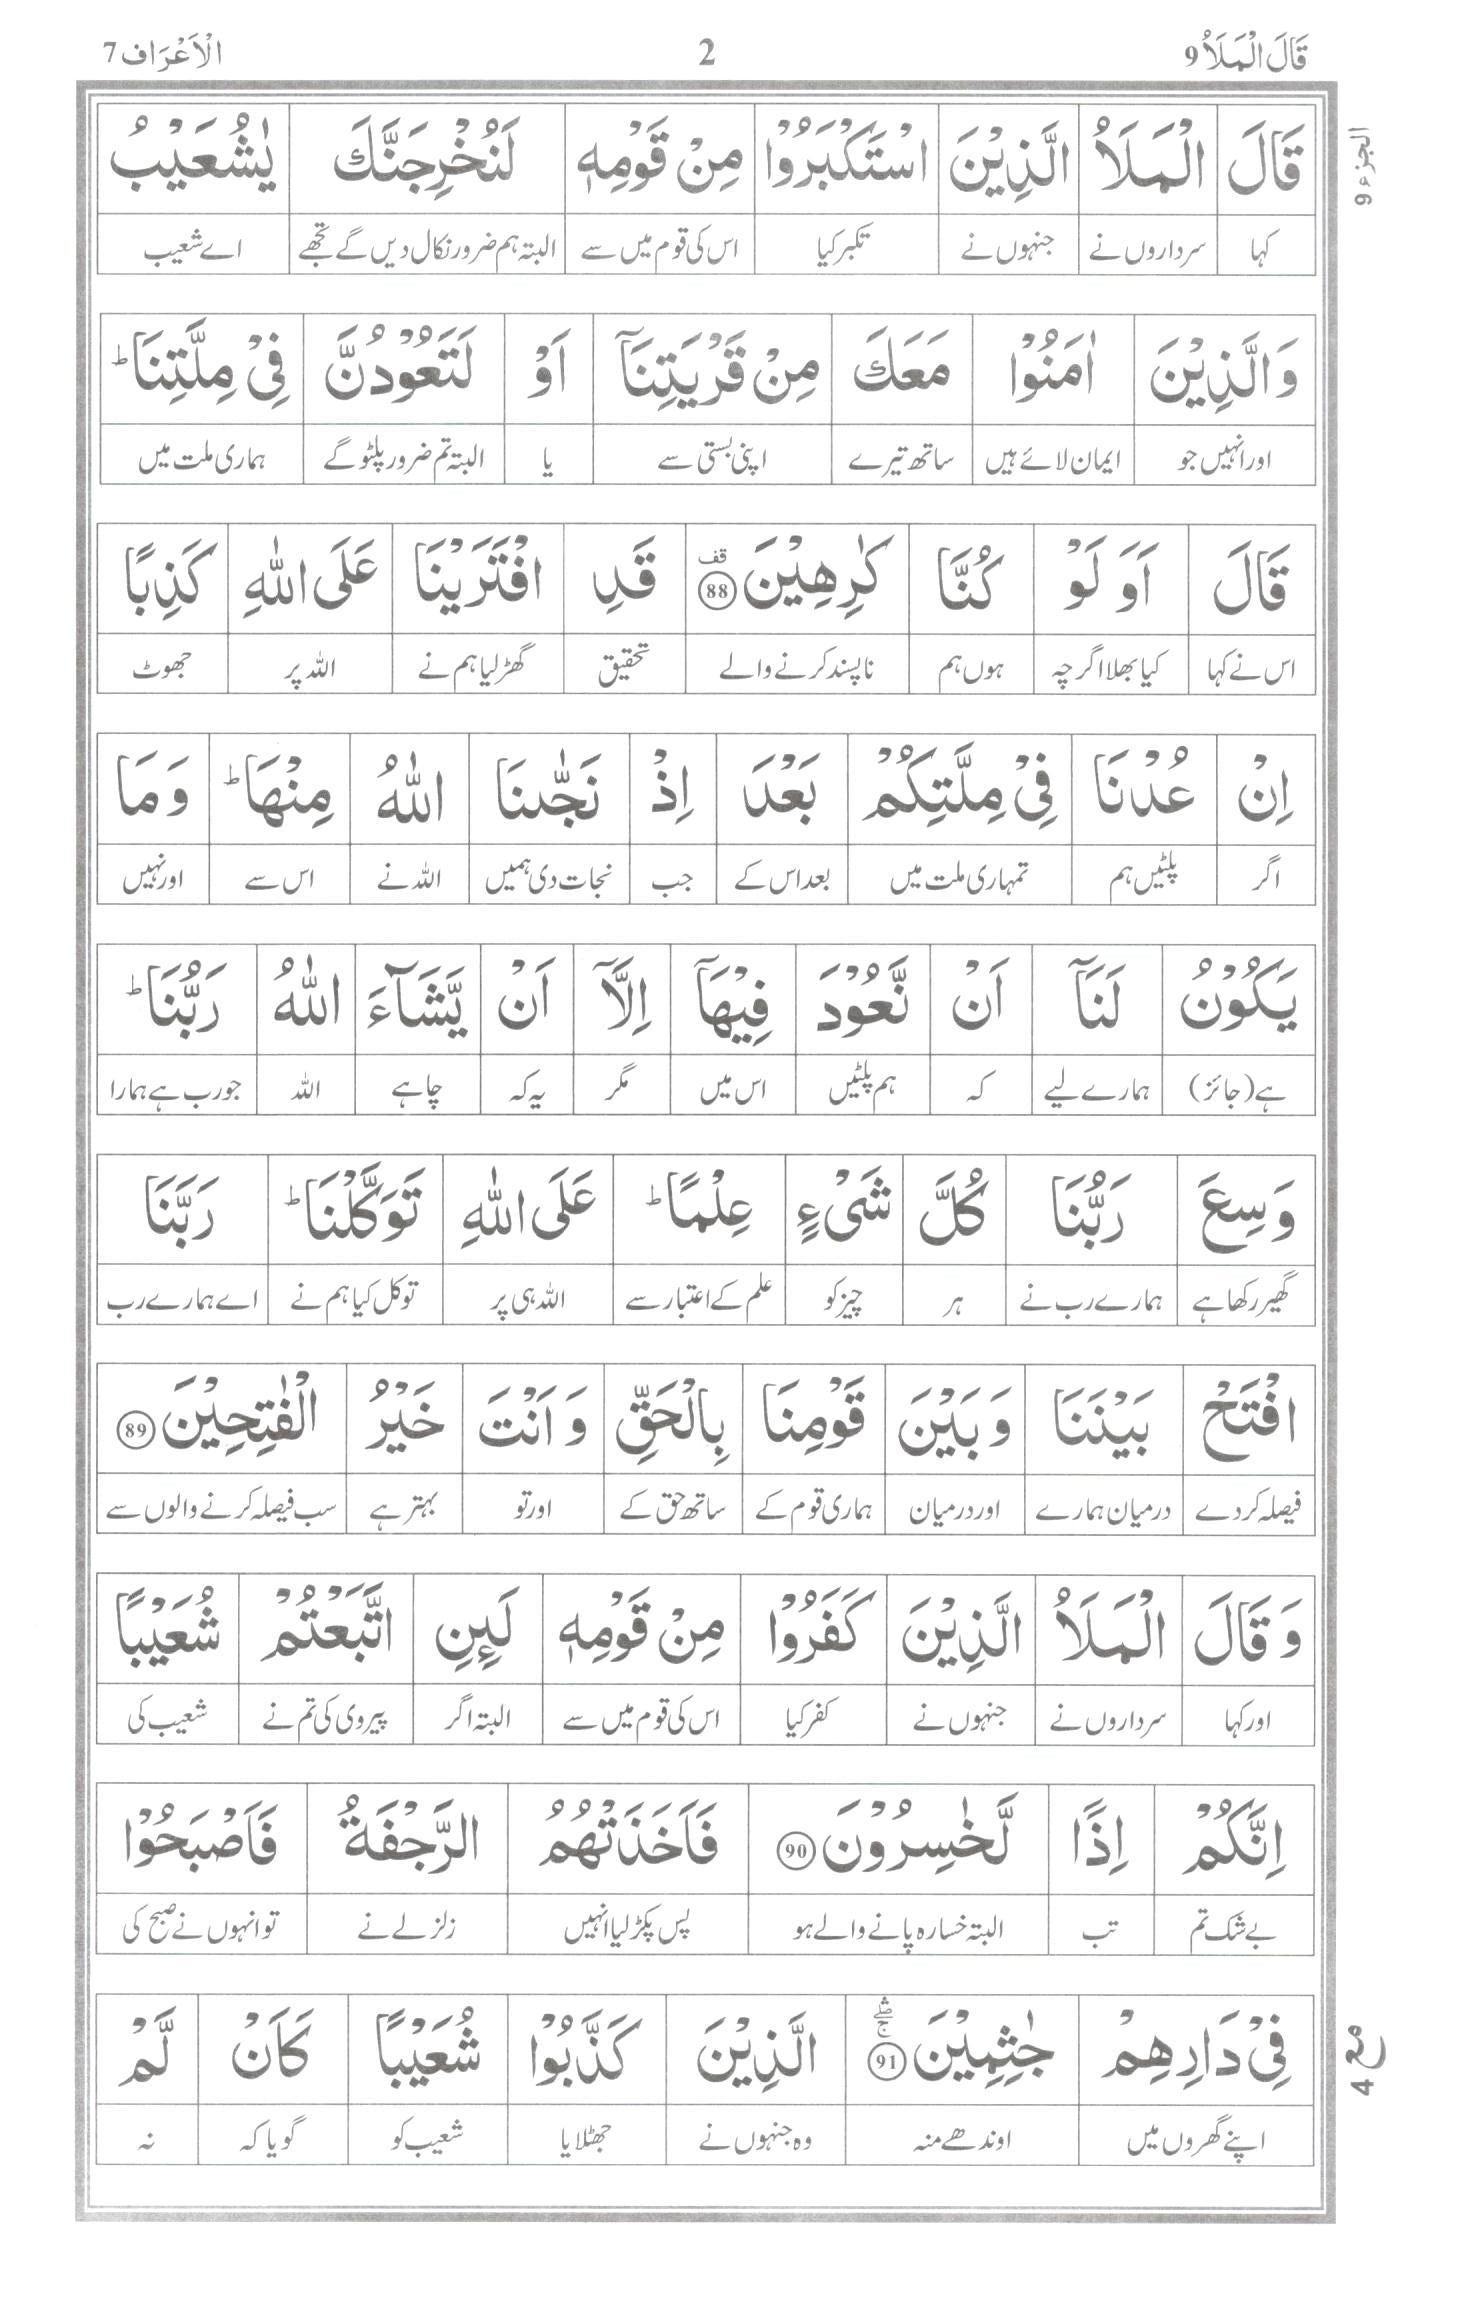 قَالَ الْمَلَاُ 9 2 الْاَعْرَاف 7
الجزء 9
قَالَ الْمَلَاُ الَّذِيْنَ اسْتَكْبَرُوْا مِنْ قَوْمِهٖ لَنُخْرِجَنَّكَ يٰشُعَيْبُ
کہا سرداروں نے جنہوں نے تکبر کیا اس کی قوم میں سے البتہ ہم ضرور نکال دیں گے تجھے اے شعیب
وَالَّذِيْنَ اٰمَنُوْا مَعَكَ مِنْ قَرْيَتِنَاۤ اَوْ لَتَعُوْدُنَّ فِيْ مِلَّتِنَا ؕ
اور انہیں جو ایمان لائے ہیں ساتھ تیرے اپنی بستی سے یا البتہ تم ضرور پلٹو گے ہماری ملت میں
قَالَ اَوَ لَوْ كُنَّا كٰرِهِيْنَ 88 قف قَدِ افْتَرَيْنَا عَلَى اللّٰهِ كَذِبًا
اس نے کہا کیا بھلا اگرچہ ہوں ہم ناپسند کرنے والے تحقیق گھڑ لیا ہم نے اللہ پر جھوٹ
اِنْ عُدْنَا فِيْ مِلَّتِكُمْ بَعْدَ اِذْ نَجّٰىنَا اللّٰهُ مِنْهَا ؕ وَمَا
اگر پلٹیں ہم تمہاری ملت میں بعد اس کے جب نجات دی ہمیں اللہ نے اس سے اور نہیں
يَكُوْنُ لَنَاۤ اَنْ نَّعُوْدَ فِيْهَاۤ اِلَّاۤ اَنْ يَّشَآءَ اللّٰهُ رَبُّنَا ؕ
ہے (جائز) ہمارے لیے کہ ہم پلٹیں اس میں مگر یہ کہ چاہے اللہ جو رب ہے ہمارا
وَسِعَ رَبُّنَا كُلَّ شَيْءٍ عِلْمًا ؕ عَلَى اللّٰهِ تَوَكَّلْنَا ؕ رَبَّنَا
گھیر رکھا ہے ہمارے رب نے ہر چیز کو علم کے اعتبار سے اللہ ہی پر توکل کیا ہم نے اے ہمارے رب
افْتَحْ بَيْنَنَا وَبَيْنَ قَوْمِنَا بِالْحَقِّ وَاَنْتَ خَيْرُ الْفٰتِحِيْنَ 89
فیصلہ کر دے درمیان ہمارے اور درمیان ہماری قوم کے ساتھ حق کے اور تو بہتر ہے سب فیصلہ کرنے والوں سے
وَقَالَ الْمَلَاُ الَّذِيْنَ كَفَرُوْا مِنْ قَوْمِهٖ لَىِٕنِ اتَّبَعْتُمْ شُعَيْبًا
اور کہا سرداروں نے جنہوں نے کفر کیا اس کی قوم میں سے البتہ اگر پیروی کی تم نے شعیب کی
اِنَّكُمْ اِذًا لَّخٰسِرُوْنَ 90 فَاَخَذَتْهُمُ الرَّجْفَةُ فَاَصْبَحُوْا
بے شک تم تب البتہ خسارہ پانے والے ہو پس پکڑ لیا انہیں زلزلے نے تو انہوں نے صبح کی
فِيْ دَارِهِمْ جٰثِمِيْنَ 91 الَّذِيْنَ كَذَّبُوْا شُعَيْبًا كَاَنْ لَّمْ
اپنے گھروں میں اوندھے منہ وہ جنہوں نے جھٹلایا شعیب کو گویا کہ نہ
مع 4